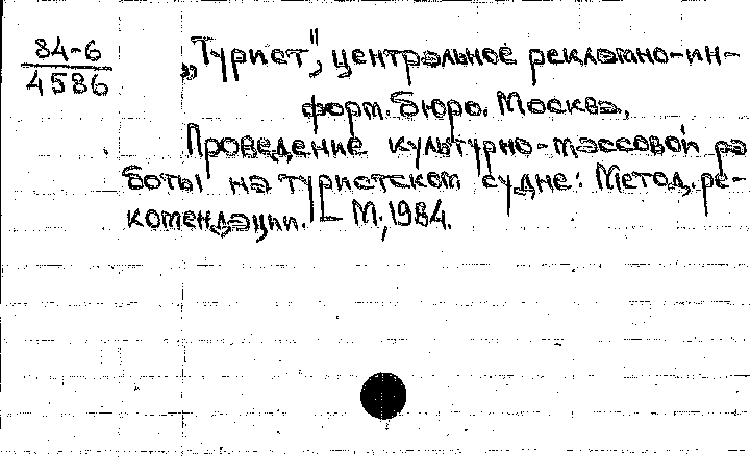 84-6
4586
„Турист", центральное рекламно-ин-
форм. бюро. Москва.
Проведение культурно-массовой ра
боты на туристском судне: Метод. ре-
комендации. - М., 1984.